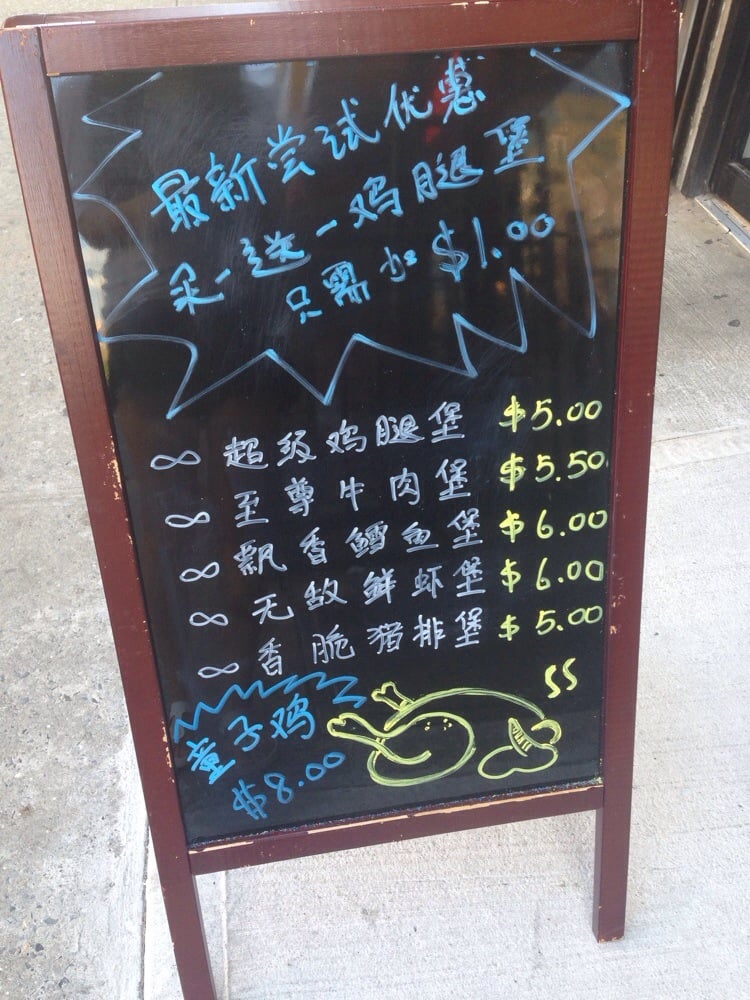 最新尝试优惠
买一送一鸡腿堡
只需加$1.00
∞ 超级鸡腿堡 $5.00
∞ 至尊牛肉堡 $5.50
∞ 飘香鳕鱼堡 $6.00
∞ 无敌鲜虾堡 $6.00
∞ 香脆猪排堡 $5.00
童子鸡
$8.00